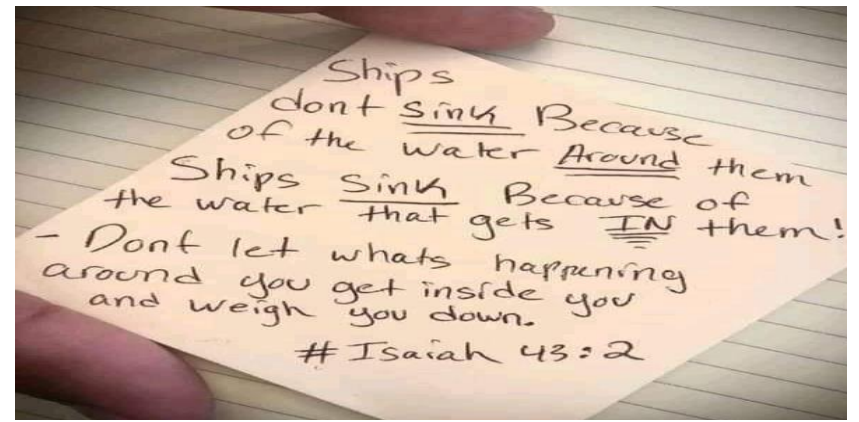 Ships
dont sink Because
of the water Around them
Ships Sink Because of
the water that gets IN them!
- Dont let whats happening
around you get inside you
and weigh you down.
# Isaiah 43:2